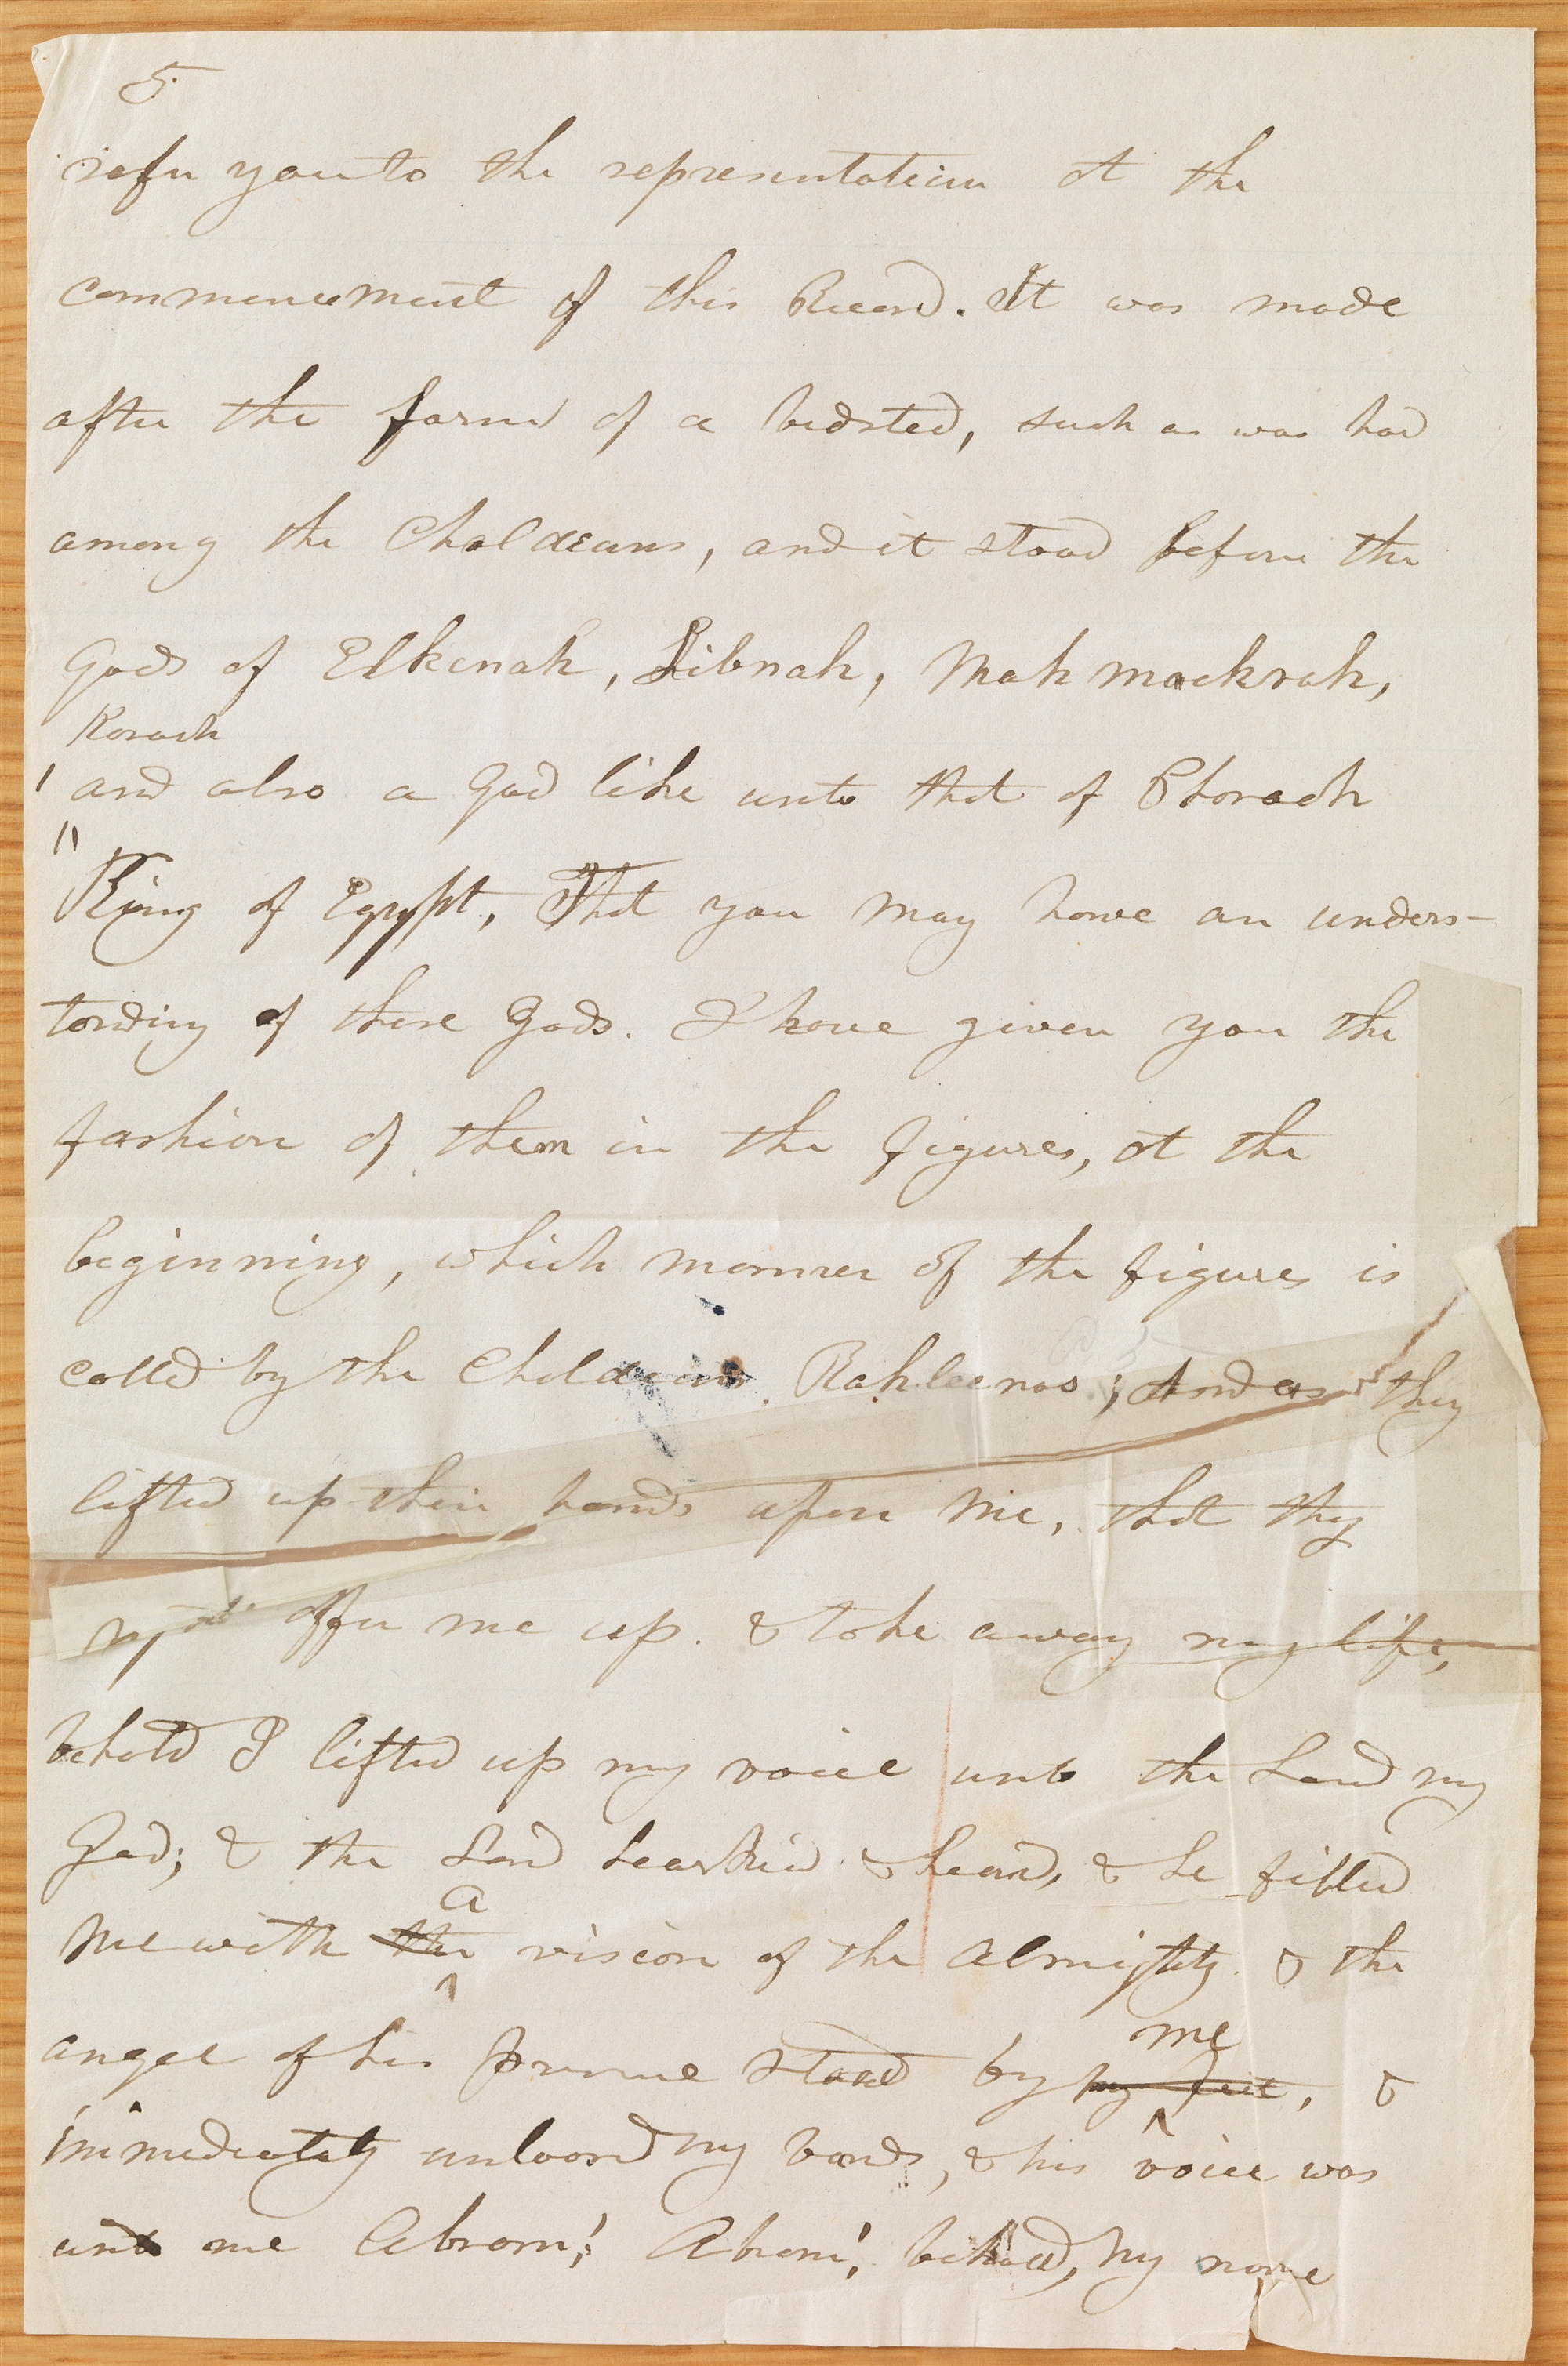 5.
refer you to the representation at the
commencement of this Record. It was made
after the form of a bedsted, such as was had
among the Chaldeans, and it stood before the
Gods of Elkenah, Libnah, Mahmackrah,
Korash
and also a God like unto that of Pharaoh
King of Egypt, That you may have an unders-
tanding of these Gods. I have given you the
fashion of them in the figures, at the
beginning, which manner of the figures is
called by the Chaldeans. Rahleenos; And as they
lifted up their hands upon me, that they
might offer me up. & take away my life,
behold I lifted up my voice unto the Lord my
God; & the Lord hearkned & heard, & he filled
a
me with the vision of the Almighty. & the
me
angel of his presence stood by my feet, &
immediately unloosed my bands, & his voice was
unto me Abram! Abram! behold, my name